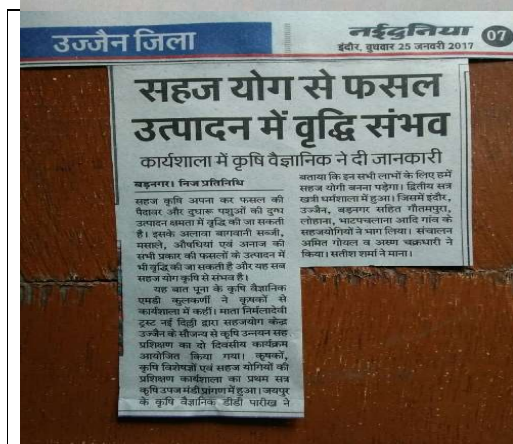 उज्जैन जिला
नईदुनिया
इंदौर, बुधवार 25 जनवरी 2017
07
सहज योग से फसल
उत्पादन में वृद्धि संभव
कार्यशाला में कृषि वैज्ञानिक ने दी जानकारी
बड़नगर। निज प्रतिनिधि
सहज कृषि अपना कर फसल की
पैदावार और दुधारू पशुओं की दुग्ध
उत्पादन क्षमता में वृद्धि की जा सकती
है। इसके अलावा बागवानी सब्जी,
मसाले, औषधियां एवं अनाज की
सभी प्रकार की फसलों के उत्पादन में
भी वृद्धि की जा सकती है और यह सब
सहज योग कृषि से संभव है।
यह बात पूना के कृषि वैज्ञानिक
एमडी कुलकर्णी ने कृषकों से
कार्यशाला में कही। माता निर्मलादेवी
ट्रस्ट नई दिल्ली द्वारा सहजयोग केन्द्र
उज्जैन के सौजन्य से कृषि उन्नयन सह
प्रशिक्षण का दो दिवसीय कार्यक्रम
आयोजित किया गया। कृषकों,
कृषि विशेषज्ञों एवं सहज योगियों की
प्रशिक्षण कार्यशाला का प्रथम सत्र
कृषि उपज मंडी प्रांगण में हुआ। जयपुर
के कृषि वैज्ञानिक डीडी पारीख ने
बताया कि इन सभी लाभों के लिए हमें
सहज योगी बनना पड़ेगा। द्वितीय सत्र
खत्री धर्मशाला में हुआ। जिसमें इंदौर,
उज्जैन, बड़नगर सहित गौतमपुरा,
लोहाना, भाटपचलाना आदि गांव के
सहजयोगियों ने भाग लिया। संचालन
अमित गोयल व अरुण चक्रधारी ने
किया। सतीश शर्मा ने माना।